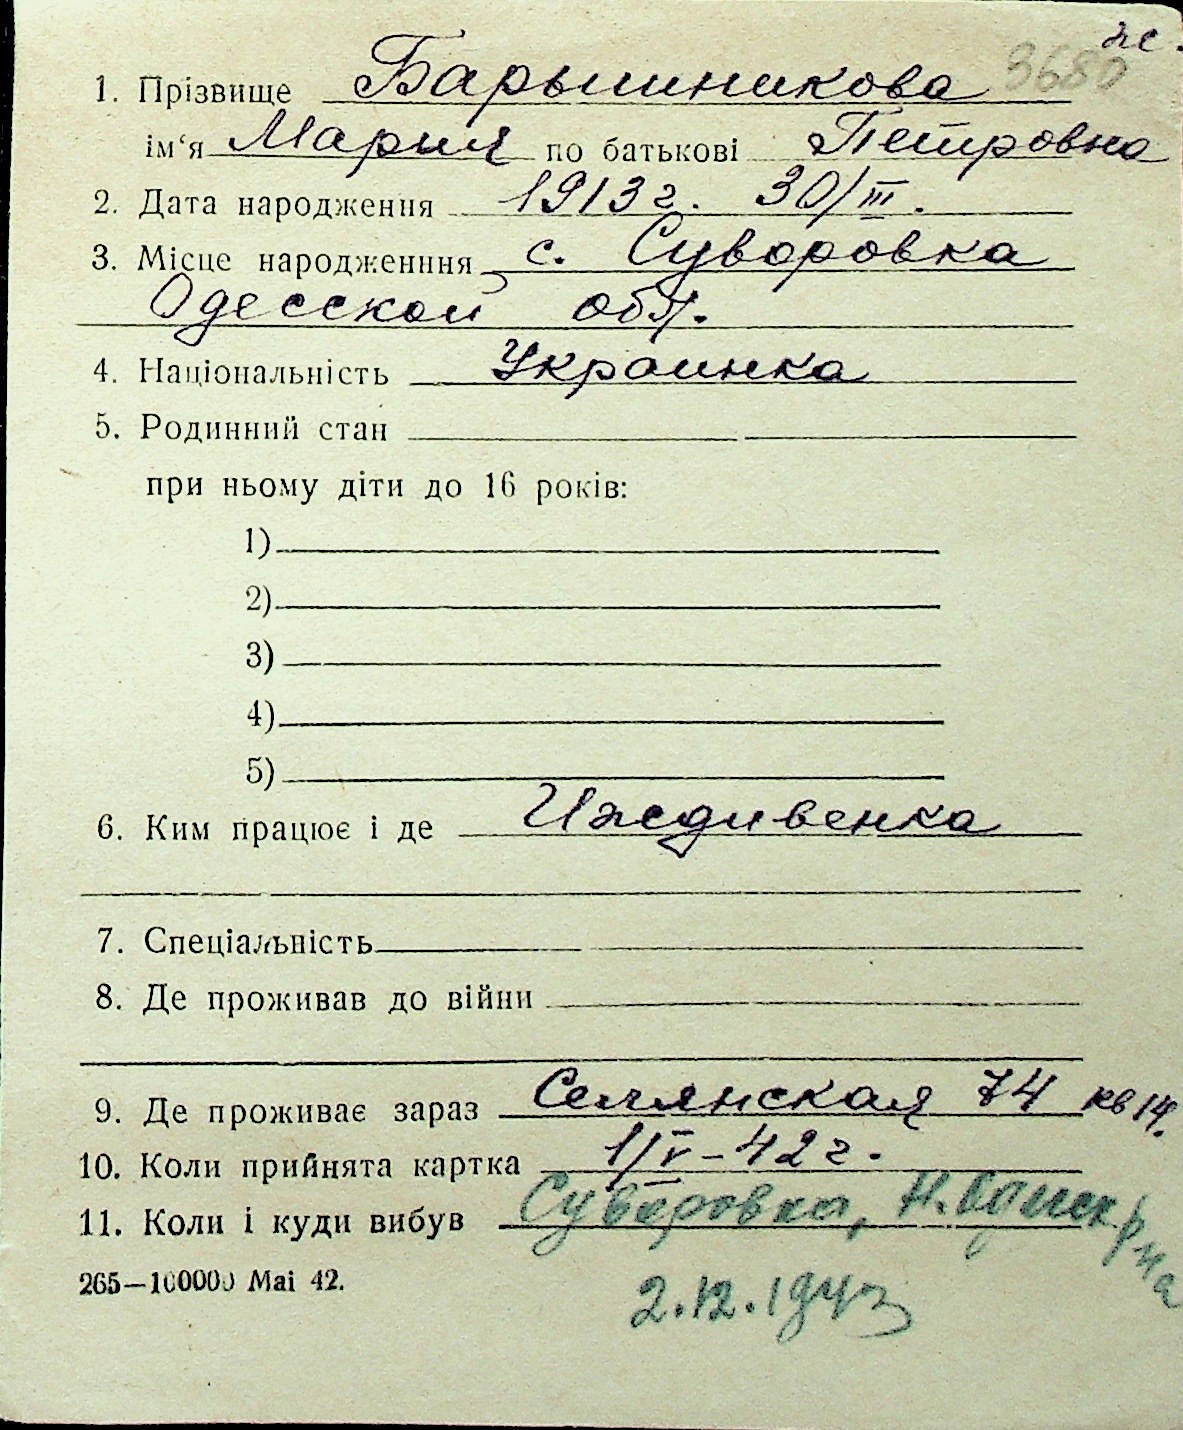 жс.
3680
1. Прізвище Барышникова
ім‘я Мария по батькові Петровна
2. Дата народження 1913 г. 30/III.
3. Місце народженння с. Суворовка
Одесской обл.
4. Національність Украинка
5. Родинний стан
при ньому діти до 16 років:
1)
2)
3)
4)
5)
6. Ким працює і де Иждивенка
7. Спеціальність
8. Де проживав до війни
9. Де проживає зараз Селянская 74 кв 14.
10. Коли прийнята картка 1/V-42 г.
11. Коли і куди вибув Суворовка,
265—100000 Mai 42.
2.12.1943